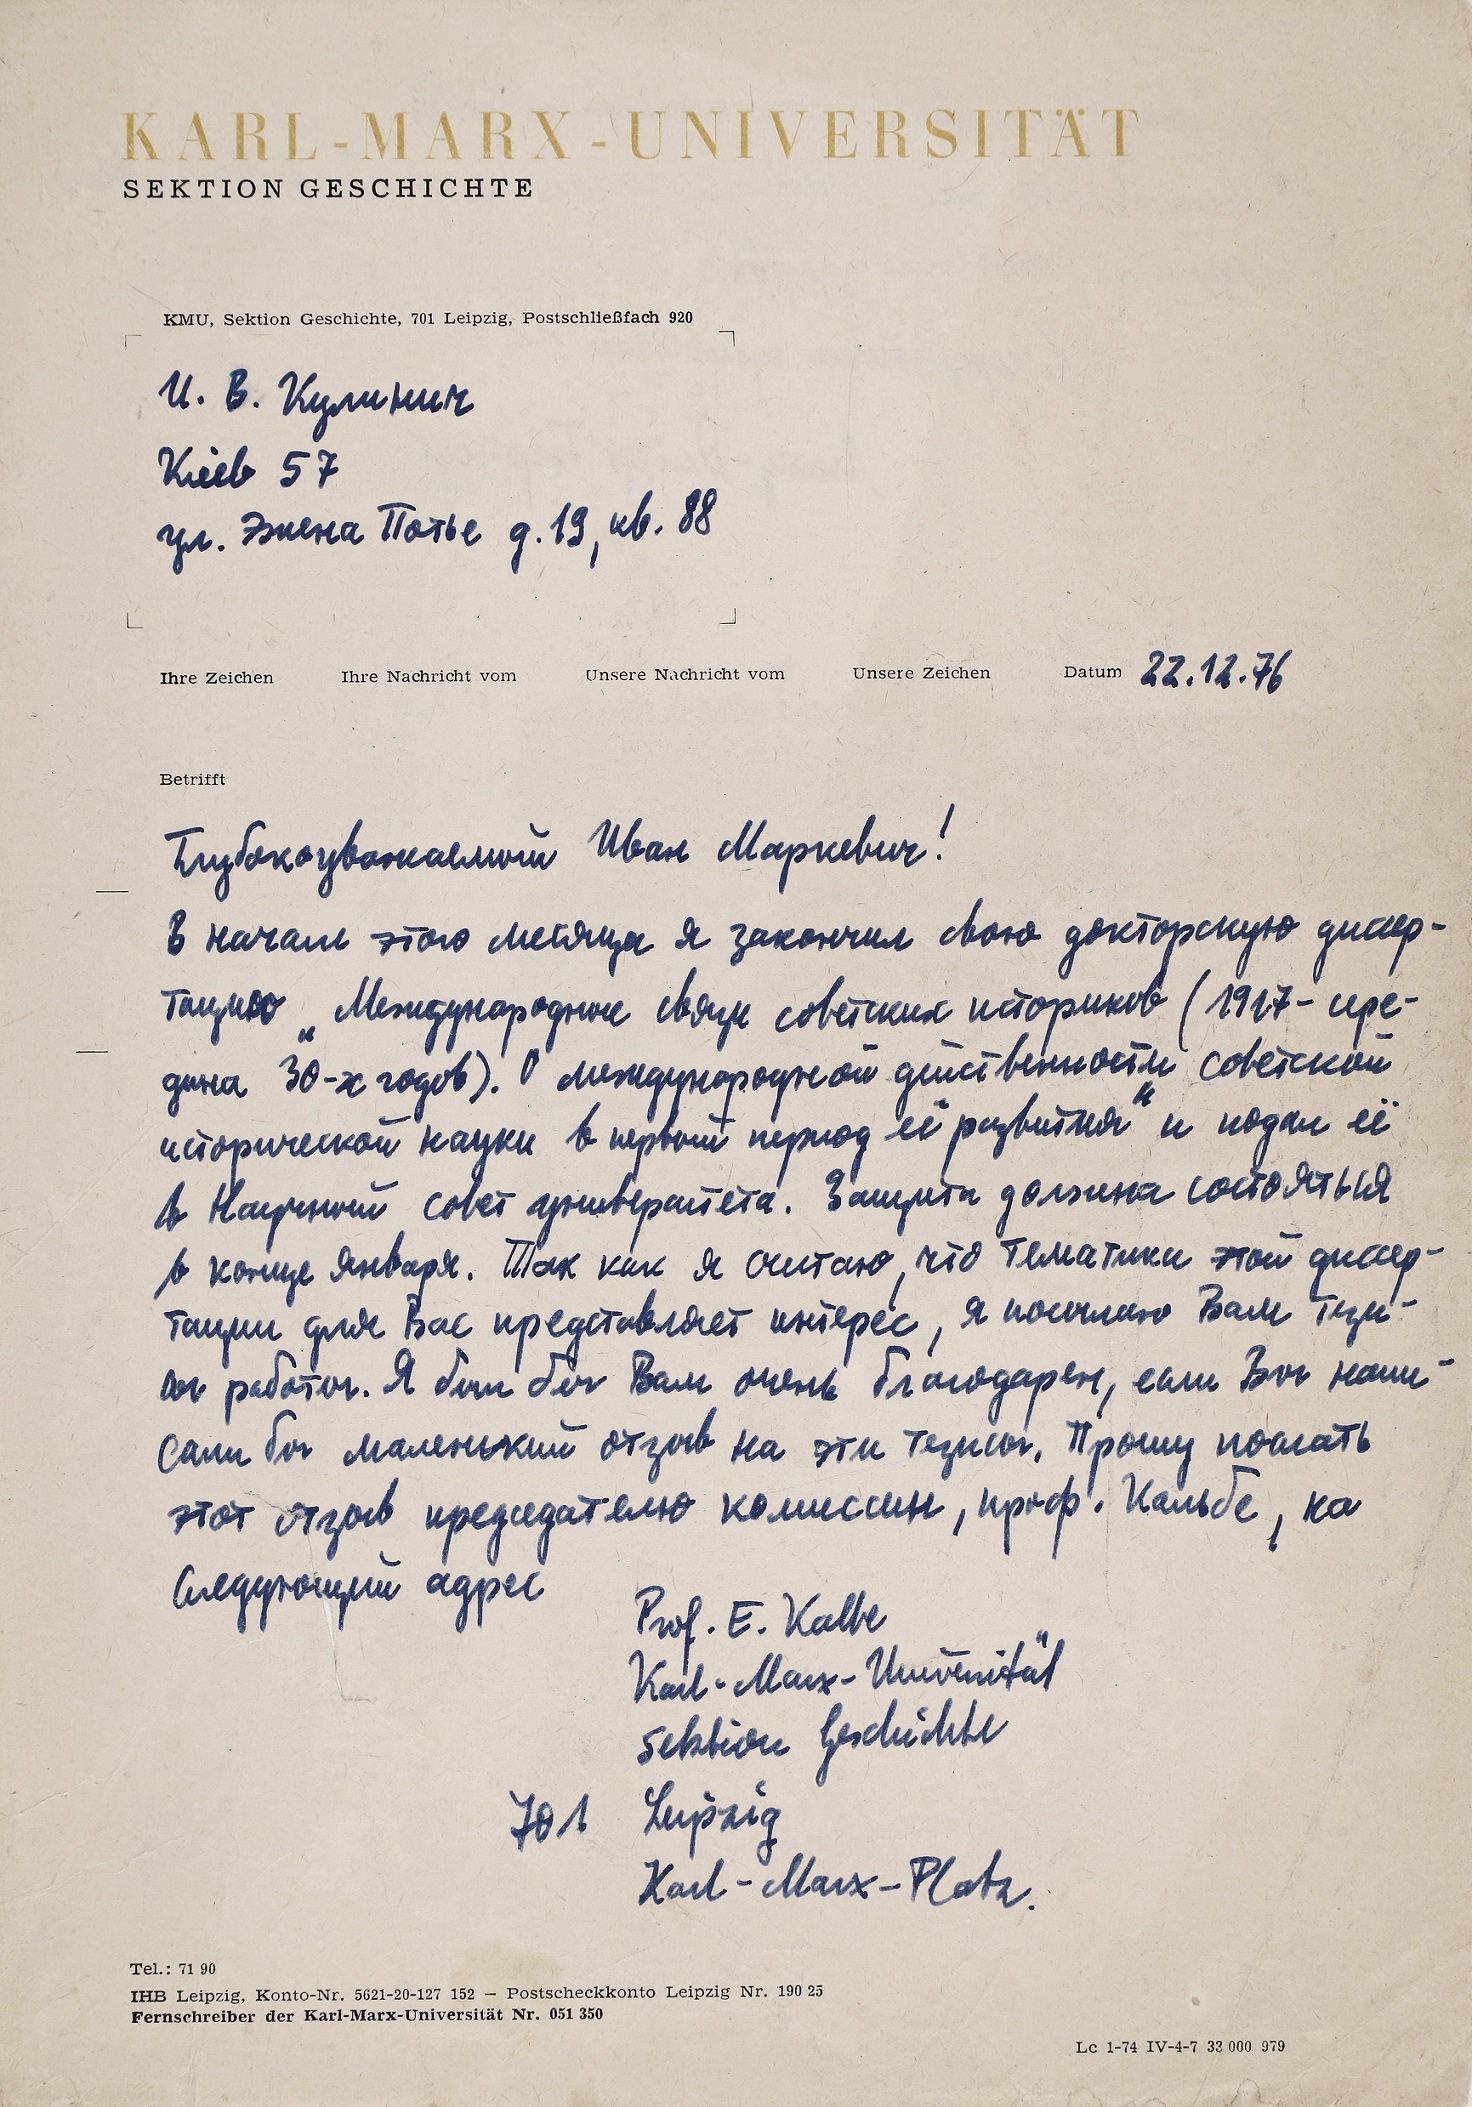 KARL-MARX-UNIVERSITÄT
SEKTION GESCHICHTE
KMU, Sektion Geschichte, 701 Leipzig, Postschließfach 920
И. В. Кулинич
Киев 57
ул. Эжена Потье д. 19, кв. 88
Ihre Zeichen Ihre Nachricht vom Unsere Nachricht vom Unsere Zeichen Datum 22.12.76
Betrifft
Глубокоуважаемый Иван Маркевич!
В начале этого месяца я закончил свою докторскую диссер-
тацию „Международные связи советских историков (1917 - сере-
дина 30-х годов). О международной действенности советской
исторической науки в первый период её развития“ и подал её
в Научный совет университета. Защита должна состояться
в конце января. Так как я считаю, что тематика этой диссер-
тации для Вас представляет интерес, я посылаю Вам тези-
сы работы. Я был бы Вам очень благодарен, если Вы напи-
сали бы маленький отзыв на эти тезисы. Прошу послать
этот отзыв председателю комиссии, проф. Кальбе, на
следующий адрес
Prof. E. Kalbe
Karl-Marx-Universität
Sektion Geschichte
701 Leipzig
Karl-Marx-Platz.
Tel.: 71 90
IHB Leipzig, Konto-Nr. 5621-20-127 152 — Postscheckkonto Leipzig Nr. 190 25
Fernschreiber der Karl-Marx-Universität Nr. 051 350
Lc 1-74 IV-4-7 33 000 979